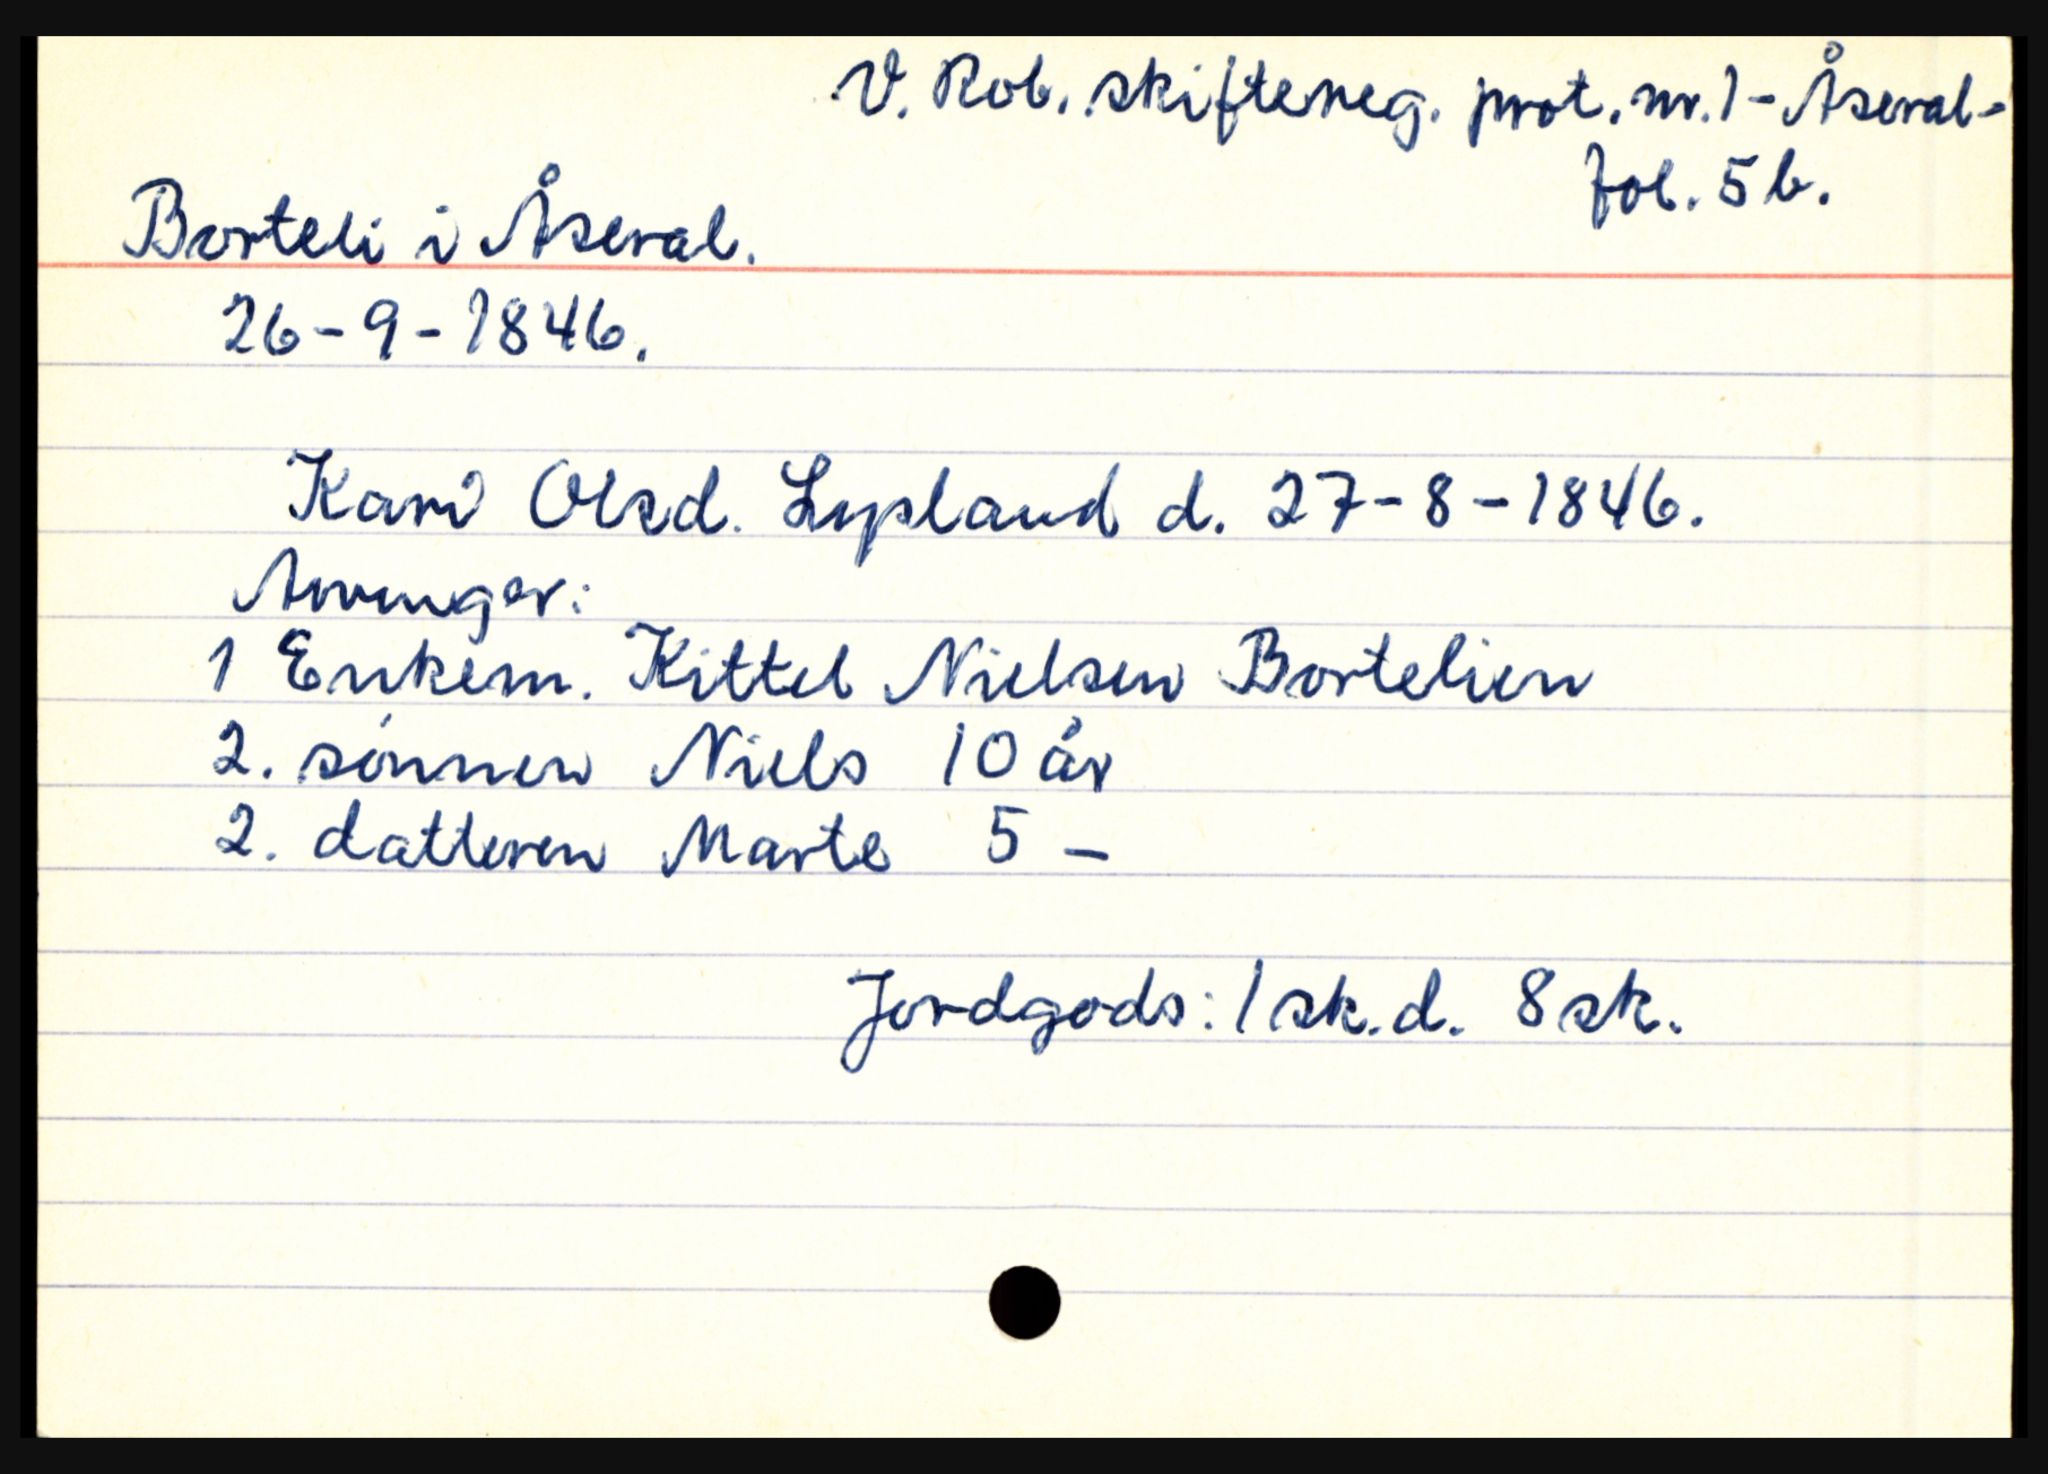 V. Rob. skiftereg. prot. nr. 1 - Åseral -
fol. 5 b.
Borteli i Åseral.
26-9-1846.
Kari Olsd. Lysland d. 27-8-1846.
Arvinger:
1 Enkem. Kittel Nielsen Bortelien
2. sønnen Niels 10 år
2. datteren Marte 5 -
Jordgods: 1 sk.d. 8 sk.